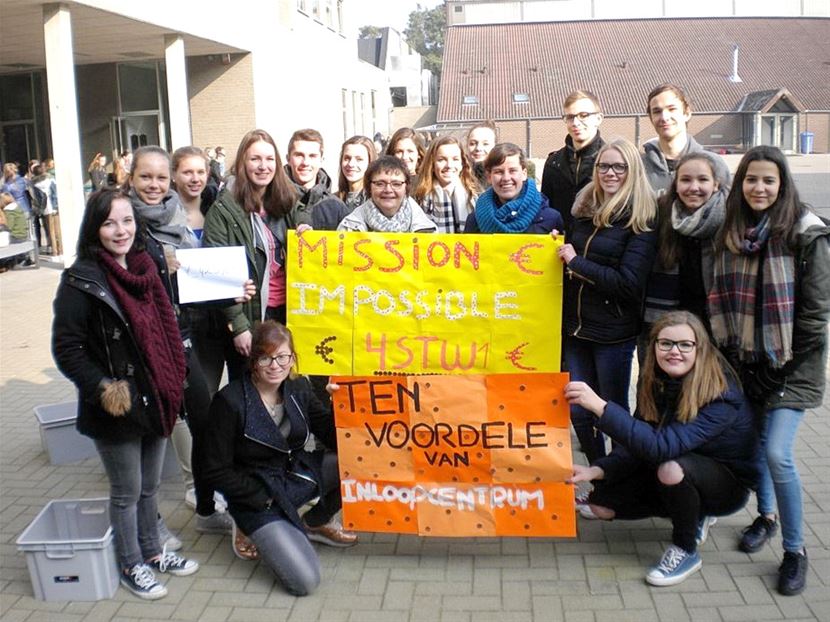 MISSION €
IMPOSSIBLE
€ 4STW1 €
TEN
VOORDELE
VAN
INLOOPCENTRUM